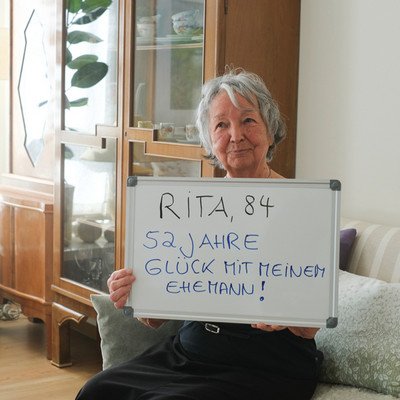 RITA, 84
52 JAHRE
GLÜCK MIT MEINEM
EHEMANN!